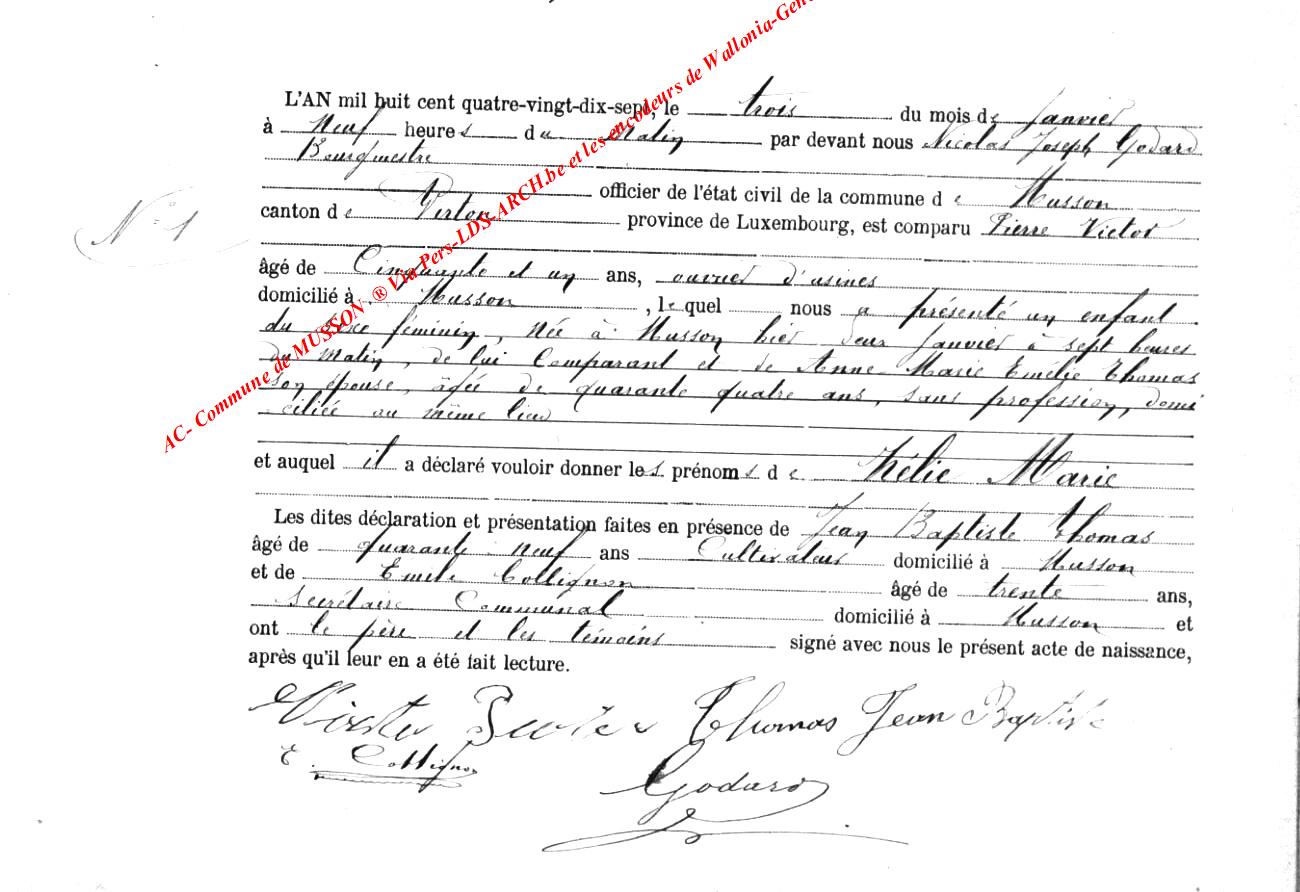 AC- Commune de MUSSON ® Via Pers-LDS-ARCH.be et les encodeurs de Wallonia-Gen
L'AN mil huit cent quatre-vingt-dix-sept, le trois du mois de Janvier
à Neuf heures du Matin par devant nous Nicolas Joseph Godard
Bourgmestre
officier de l'état civil de la commune de Musson
N° 1
canton de Virton province de Luxembourg, est comparu Pierre Victor
âgé de Cinquante et un ans, ouvrier d'usines
domicilié à Musson, lequel nous a présenté un enfant
du sexe féminin, née à Musson hier deux Janvier à sept heures
du Matin, de lui Comparant et de Anne Marie Emélie Thomas
son épouse, âgée de quarante quatre ans, sans profession, domi
ciliée au même lieu
et auquel il a déclaré vouloir donner les prénoms de Zélie Marie
Les dites déclaration et présentation faites en présence de Jean Baptiste Thomas
âgé de quarante neuf ans Cultivateur domicilié à Musson
et de Emile Collignon âgé de trente ans,
Secrétaire Communal domicilié à Musson et
ont le père et les témoins signé avec nous le présent acte de naissance,
après qu'il leur en a été fait lecture.
Thomas Jean Baptiste
E. Collignon
Godard